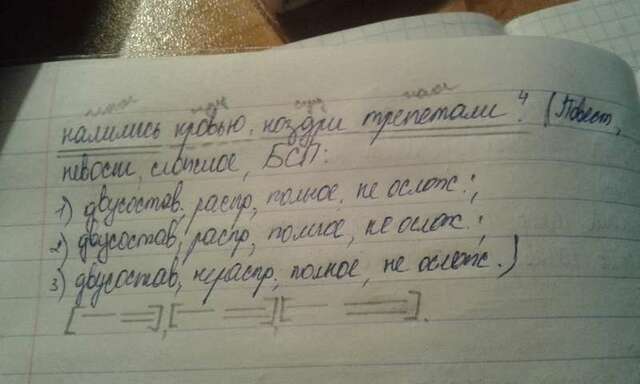 глагол сущ сущ глагол
налились кровью, ноздри трепетали.⁴ (Повест,
невоскл, сложное, БСП:
1) двусостав. распр, полное, не ослож.;
2) двусостав, распр, полное, не ослож.;
3) двусостав, нераспр, полное, не ослож.)
[— =], [— =], [— =].